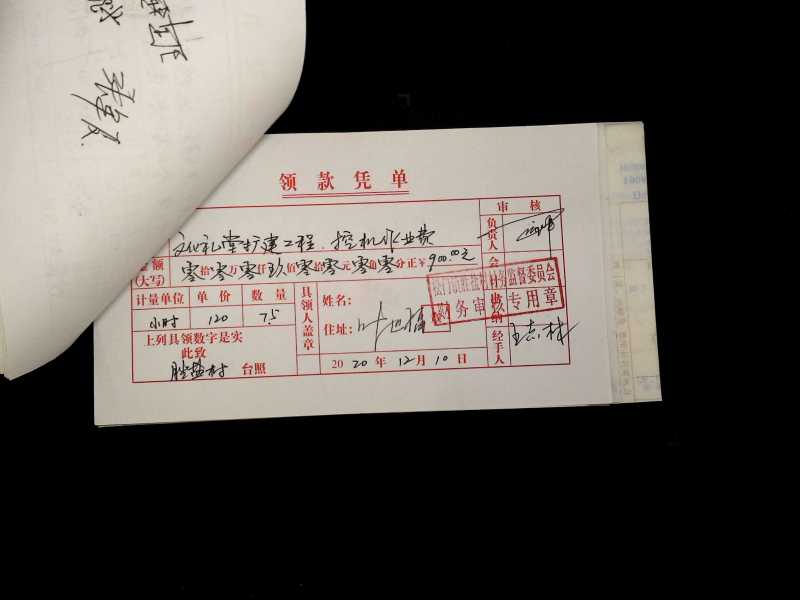 领款凭单
审核
负责人
文化礼堂扩建工程、挖机作业费
金额
(大写)
零拾零万零仟玖佰零拾零元零角零分正¥900.00元
会
村务监督委员会
财务审核专用章
计量单位 单价 数量
小时 120 7.5
具领人盖章
姓名：
住址：
纳
经手人
王志林
上列具领数字是实
此致
胜盐村 台照
2020年12月10日